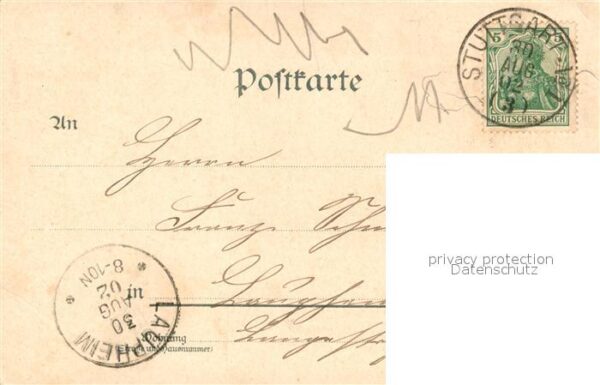 5 5
STUTTGART
30
AUG
02
Postkarte
DEUTSCHES REICH
An
Herrn
Franz
privacy protection
Datenschutz
LAUPHEIM
30
AUG
02
8-10N
in
Laupheim
Wohnung
(Straße und Hausnummer)